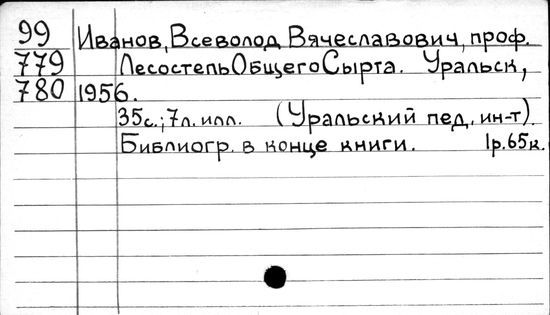 99 Иванов, Всеволод Вячеславович, проф.
779 Лесостепь Общего Сырта. Уральск,
780 1956.
35с.; 7л. илл. (Уральский пед. ин-т).
Библиогр. в конце книги. 1р.65к.